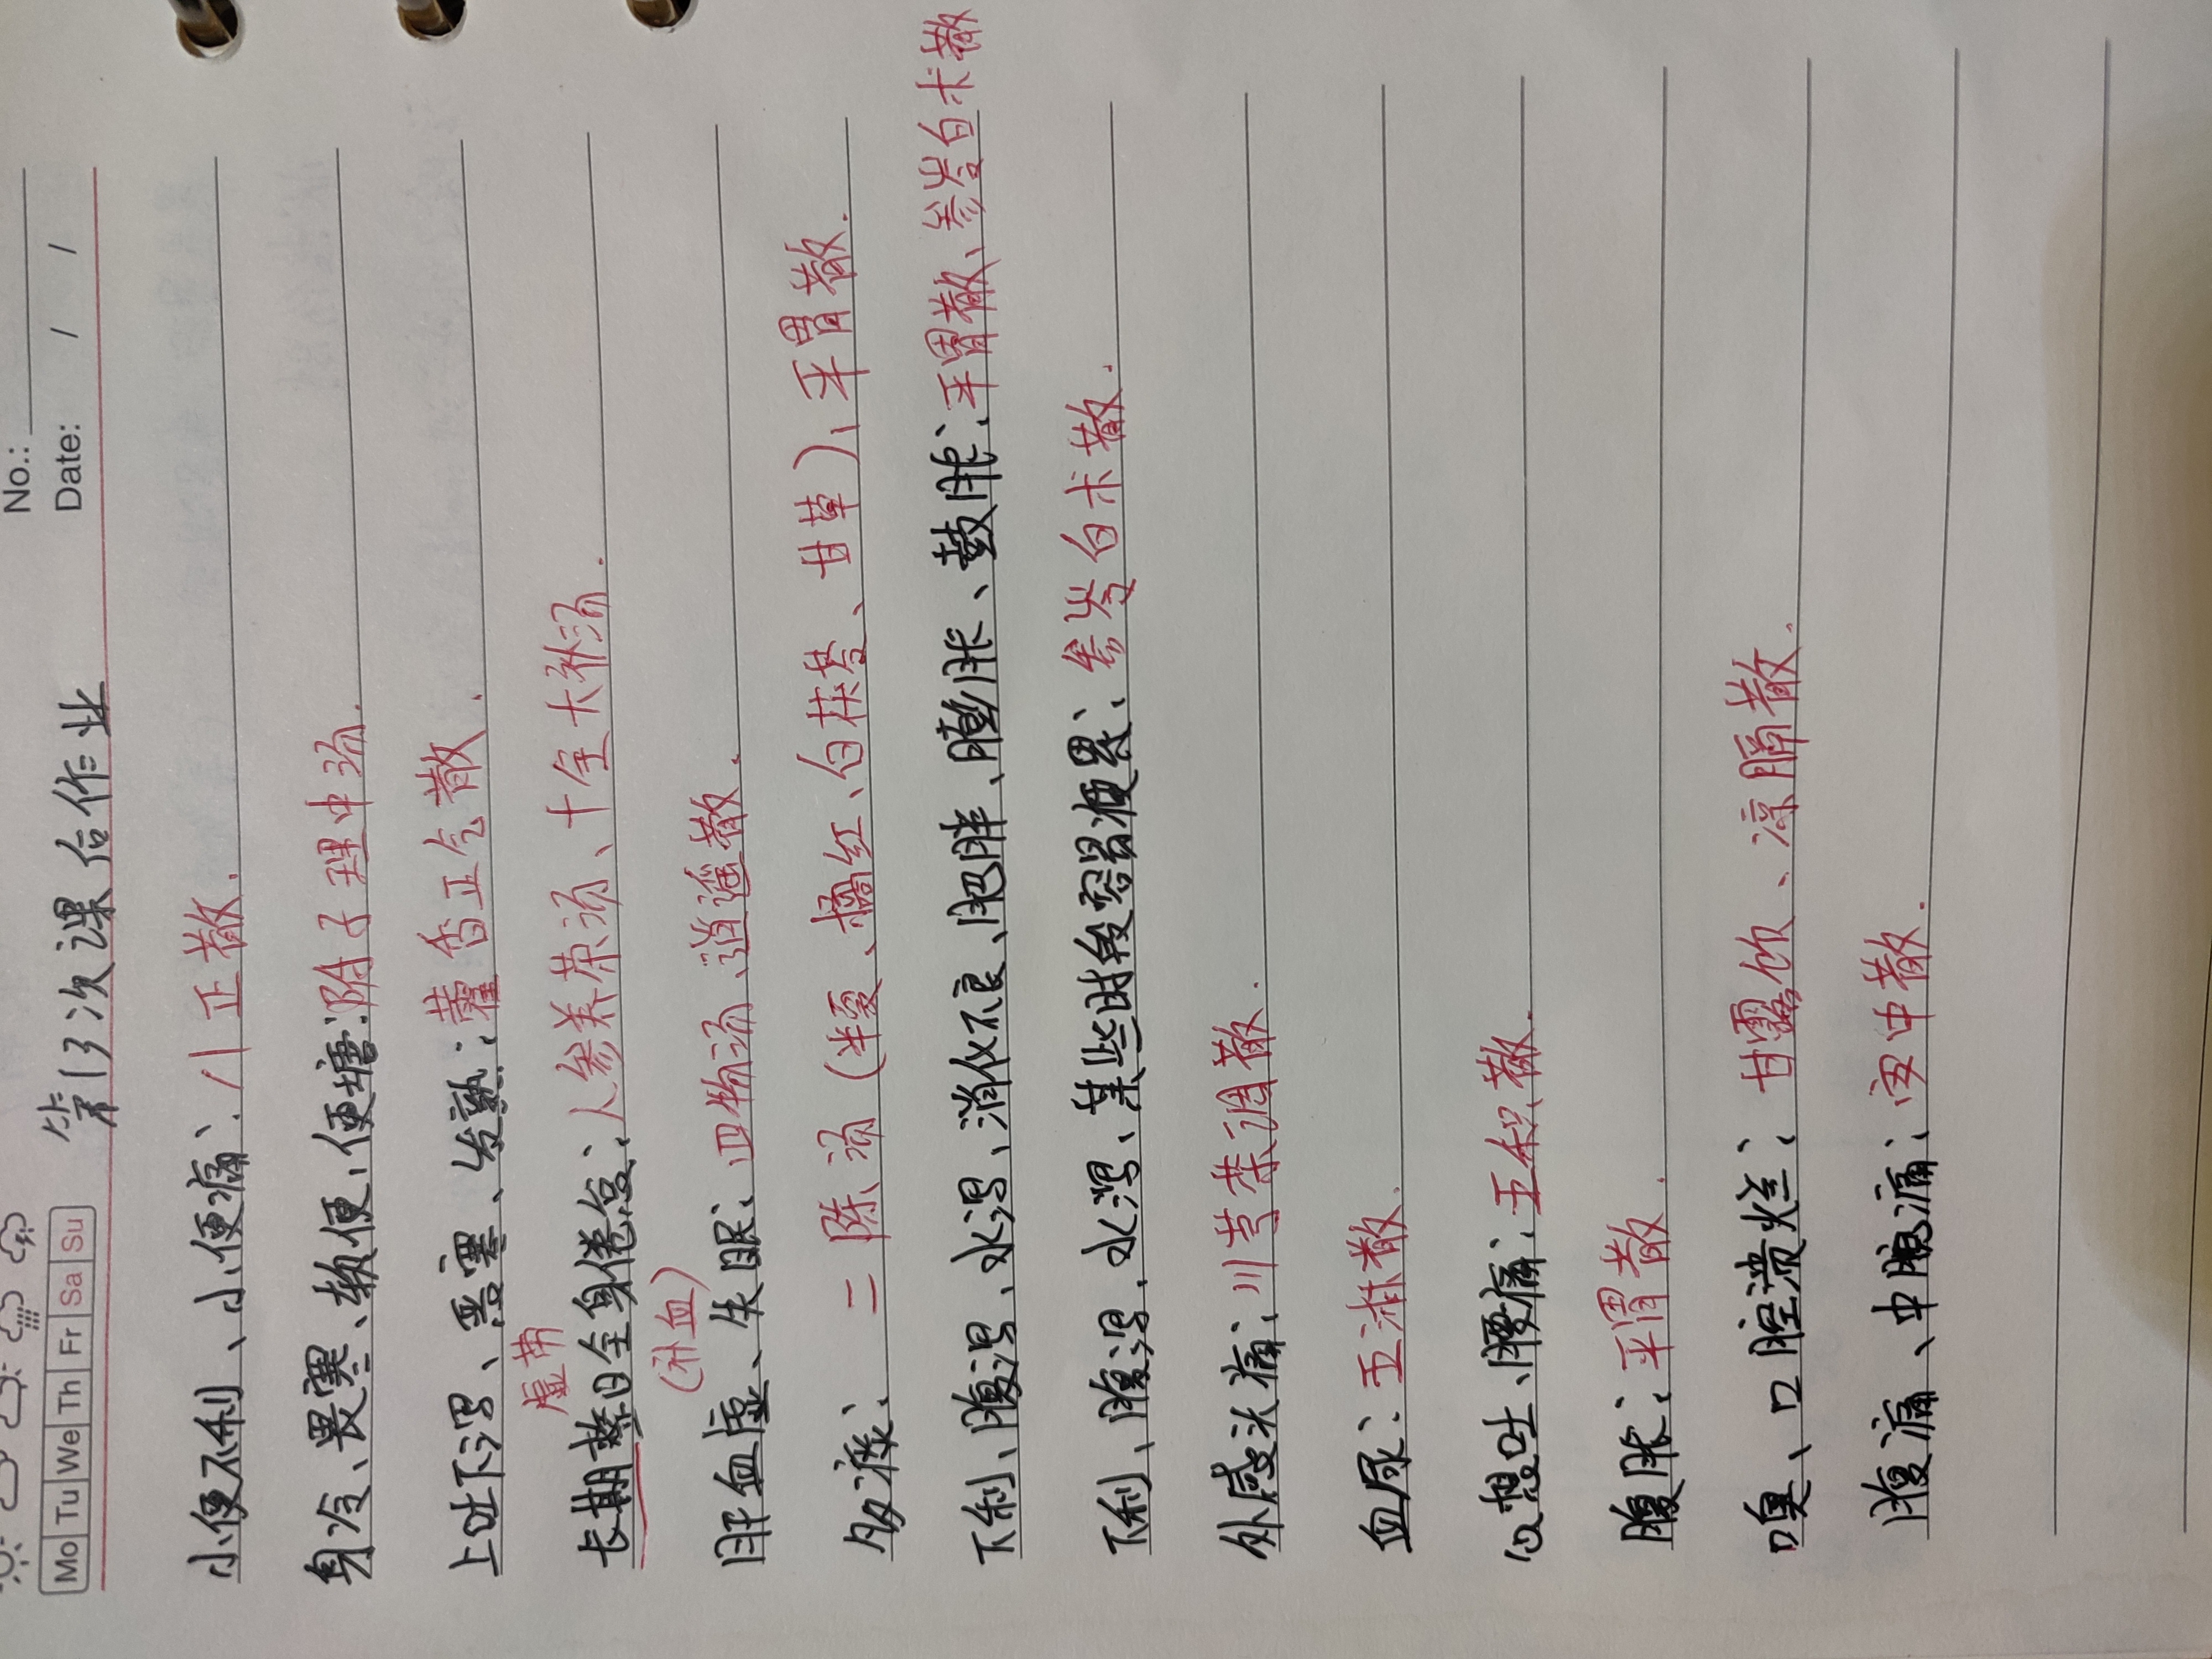 No.:
Date: / /
Mo Tu We Th Fr Sa Su
第13次课后作业
小便不利、小便痛：八正散.
身冷、畏寒、软便、便塘：附子理中汤.
上吐下泻、恶寒、发熱：藿香正气散.
虚劳
长期整日全身倦怠：人参养荣汤、十全大补汤.
(补血)
肝血虚、失眠：四物汤、逍遥散.
多痰：二陈汤（半夏、橘红、白茯苓、甘草）、平胃散.
下利、腹泻、水泻、消化不良、肥胖、膨胀、鼓胀：平胃散、参苓白术散
下利、腹泻、水泻、某些时段容易疲累：参苓白术散.
外感头痛：川芎茶调散.
血尿：五淋散.
仅想吐、腰痛：五积散.
腹胀：平胃散.
嗅、口腔溃烂：甘露饮、凉膈散.
腹痛、中脘痛：安中散.